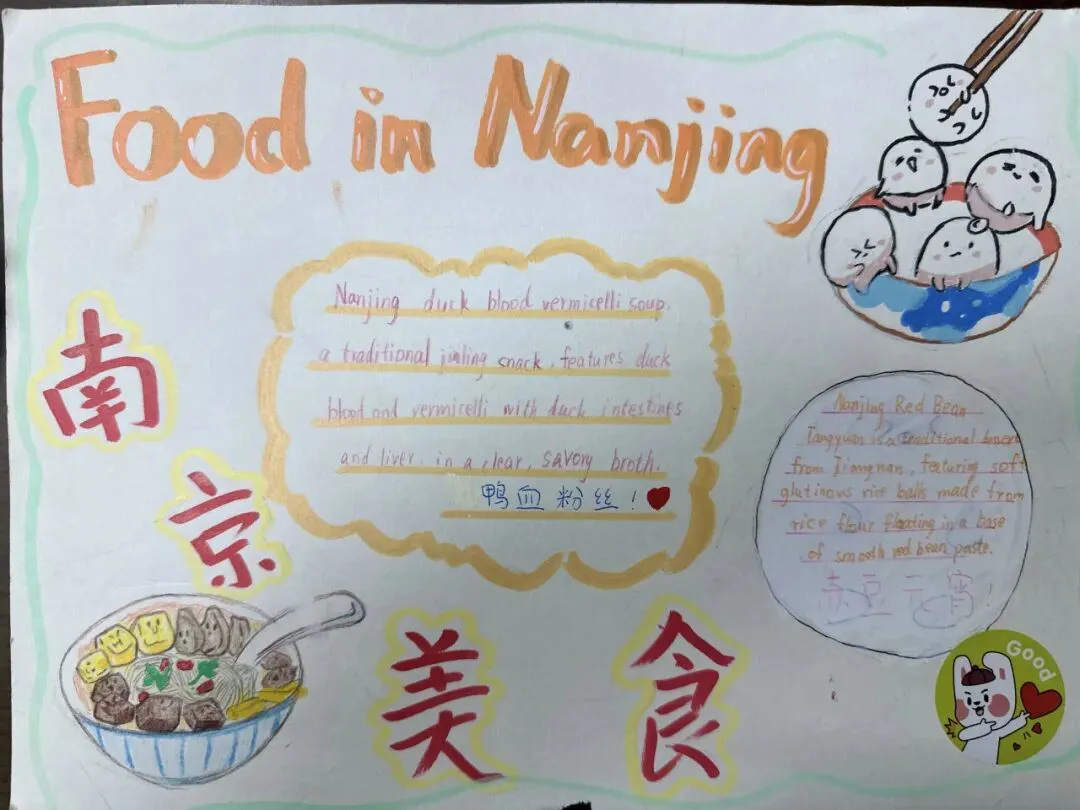 Food in Nanjing
Nanjing duck blood vermicelli soup.
a traditional jinling snack, features duck
blood and vermicelli with duck intestines
and liver. in a clear, savory broth.
鸭血粉丝!
南
京
美食
Nanjing Red Bean
Tangyuan is a traditional
from Jiangnan, featuring soft
glutinous rice balls made from
rice flour floating in a base
of smooth red bean paste.
赤豆元宵!
Good